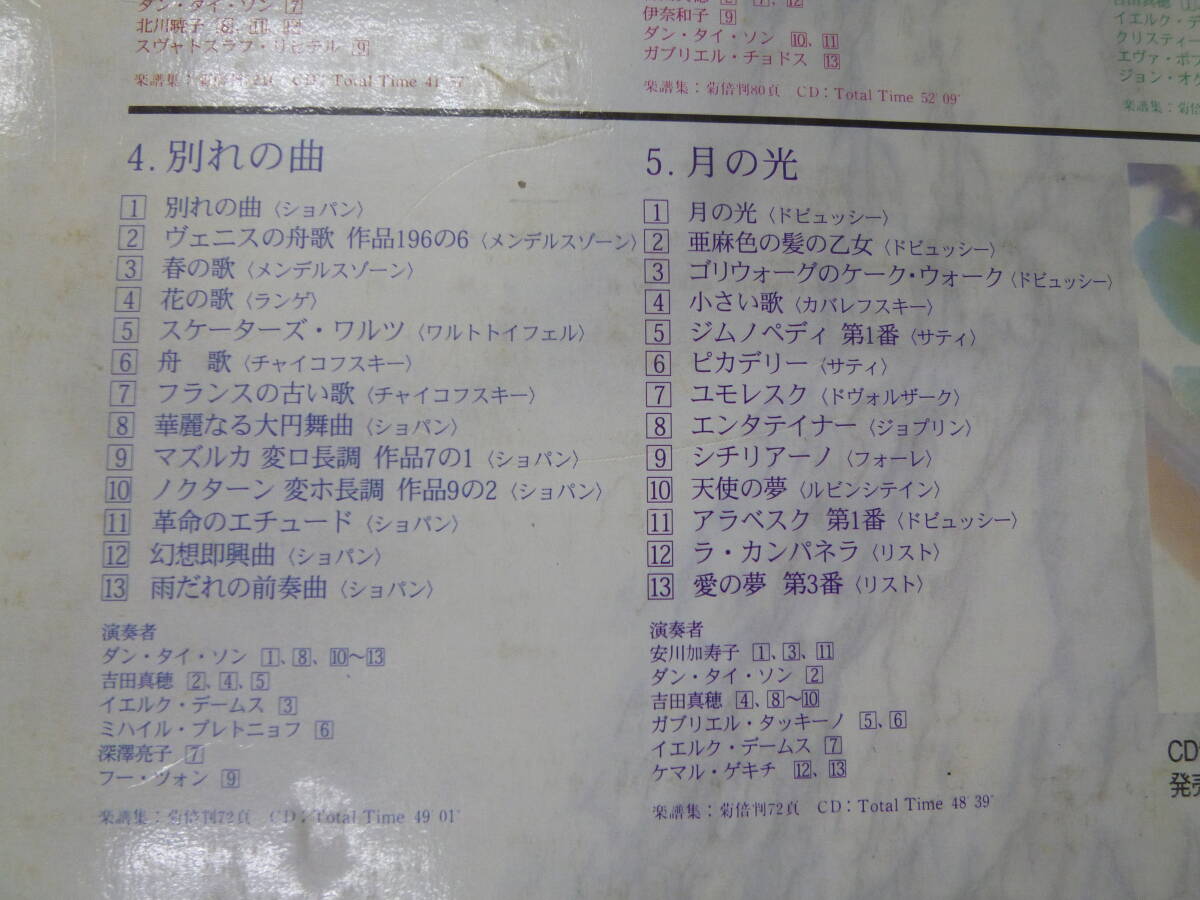 ダン・タイ・ソン 7
北川暁子 8、11、12
スヴャトスラフ・リヒテル 9
楽譜集：菊倍判 CD：Total Time 41
伊奈和子 9
ダン・タイ・ソン 10、11
ガブリエル・チョドス 13
楽譜集：菊倍判80頁 CD：Total Time 52′09″
イエルク・デ
クリスティー
エヴァ・ポブ
ジョン・オ
楽譜集：菊倍
4. 別れの曲
1 別れの曲〈ショパン〉
2 ヴェニスの舟歌 作品196の6〈メンデルスゾーン〉
3 春の歌〈メンデルスゾーン〉
4 花の歌〈ランゲ〉
5 スケーターズ・ワルツ〈ワルトトイフェル〉
6 舟 歌〈チャイコフスキー〉
7 フランスの古い歌〈チャイコフスキー〉
8 華麗なる大円舞曲〈ショパン〉
9 マズルカ 変ロ長調 作品7の1〈ショパン〉
10 ノクターン 変ホ長調 作品9の2〈ショパン〉
11 革命のエチュード〈ショパン〉
12 幻想即興曲〈ショパン〉
13 雨だれの前奏曲〈ショパン〉
演奏者
ダン・タイ・ソン 1、8、10～13
吉田真穂 2、4、5
イエルク・デームス 3
ミハイル・プレトニョフ 6
深澤亮子 7
フー・ツォン 9
楽譜集：菊倍判72頁 CD：Total Time 49′01″
5. 月の光
1 月の光〈ドビュッシー〉
2 亜麻色の髪の乙女〈ドビュッシー〉
3 ゴリウォーグのケーク・ウォーク〈ドビュッシー〉
4 小さい歌〈カバレフスキー〉
5 ジムノペディ 第1番〈サティ〉
6 ピカデリー〈サティ〉
7 ユモレスク〈ドヴォルザーク〉
8 エンタテイナー〈ジョプリン〉
9 シチリアーノ〈フォーレ〉
10 天使の夢〈ルビンシテイン〉
11 アラベスク 第1番〈ドビュッシー〉
12 ラ・カンパネラ〈リスト〉
13 愛の夢 第3番〈リスト〉
演奏者
安川加寿子 1、3、11
ダン・タイ・ソン 2
吉田真穂 4、8～10
ガブリエル・タッキーノ 5、6
イエルク・デームス 7
ケマル・ゲキチ 12、13
楽譜集：菊倍判72頁 CD：Total Time 48′39″
CD
発売